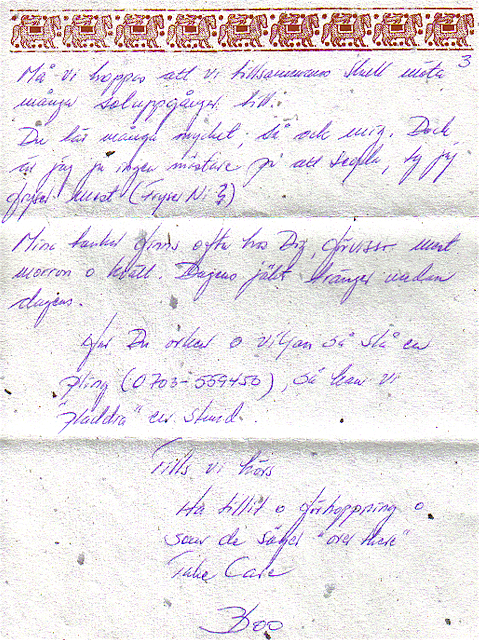 3
Må vi hoppas att vi tillsammans skall möta
många soluppgångar till.
Du lär många mycket, så och mig. Dock
är jag ju ingen mästare på att segla, ty jag
fryser mest (Fryser Ni?)
Mina tankar finns ofta hos Dig, förvisso mest
morron o kväll. Dagens jäkt tränger undan
dagens.
Har Du orken o viljan så slå en
pling (0703-559450), så kan vi
"pladdra" en stund.
Tills vi hörs
Ha tillit o förhoppning o
som de säger "over there"
Take Care